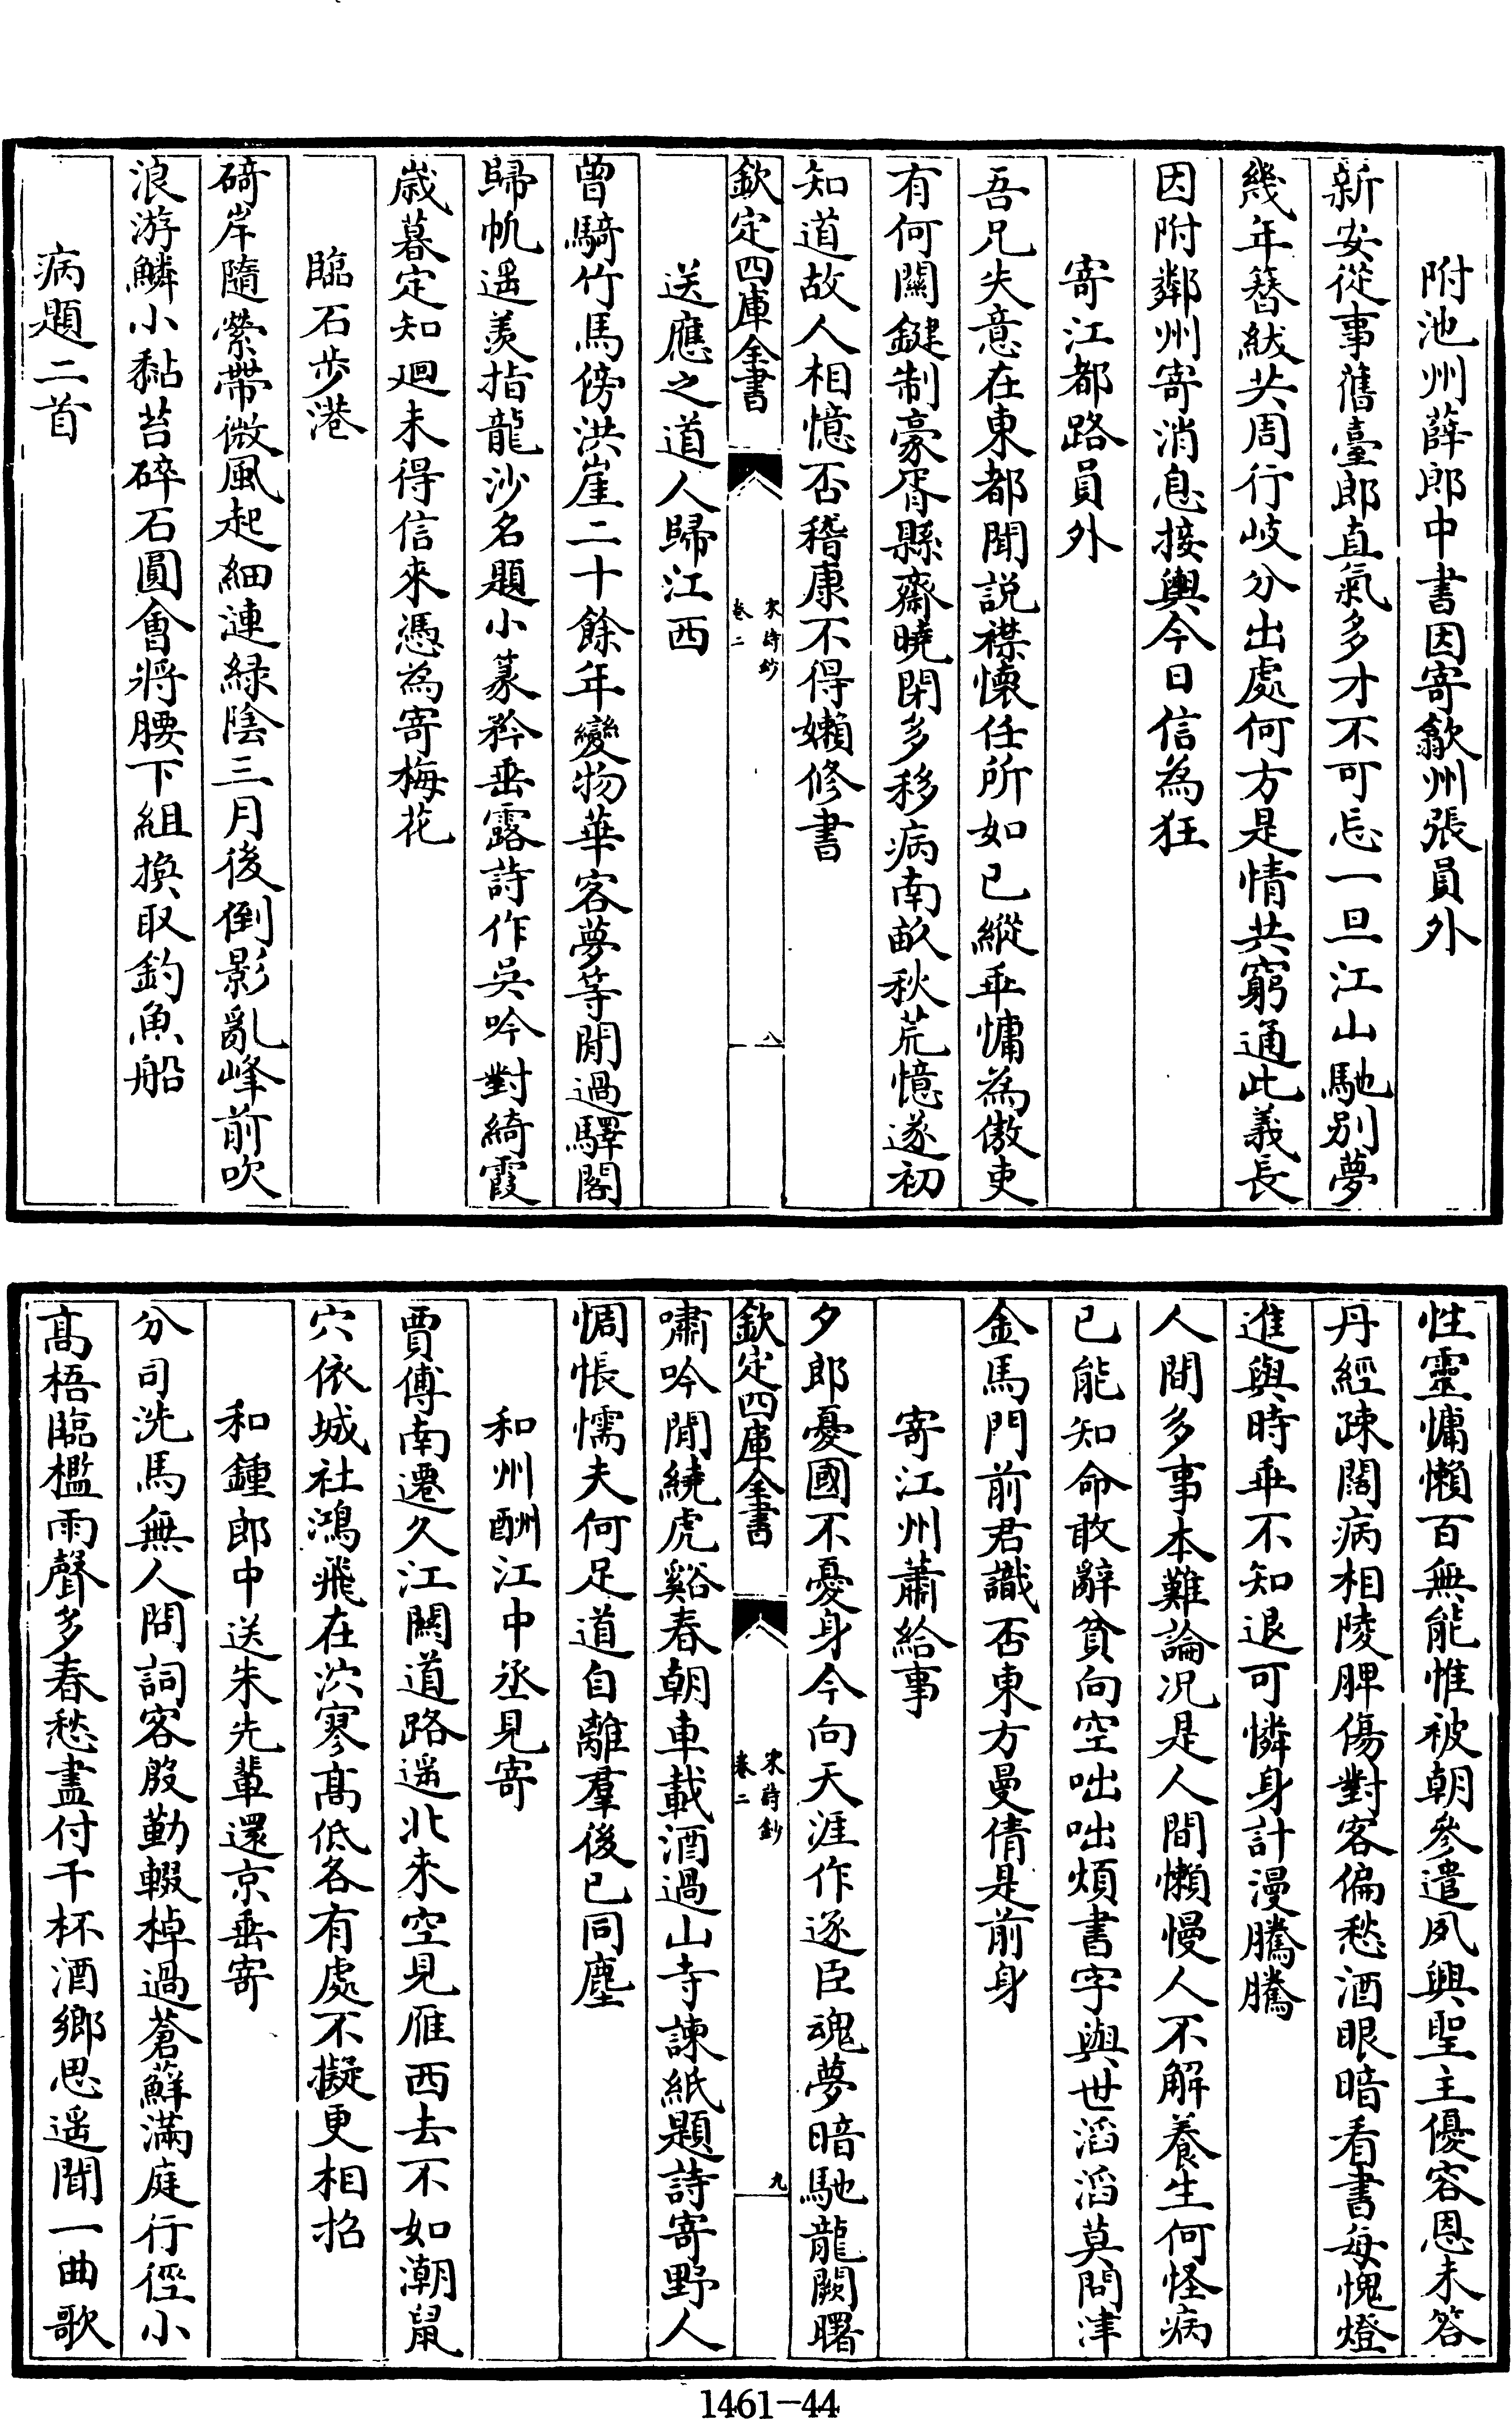 附池州薛郎中書因寄歙州張員外
新安從事舊臺郎直氣多才不可忘一旦江山馳别夢
幾年簪紱共周行岐分出處何方是情共窮通此義長
因附鄰州寄消息接輿今日信為狂
寄江都路員外
吾兄失意在東都聞説襟懷任所如已縱疎慵為傲吏
有何關鍵制豪胥縣齋曉閉多移病南畝秋荒憶遂初
知道故人相憶否嵇康不得嬾修書
欽定四庫全書
宋詩鈔
卷二
八
送應之道人歸江西
曾騎竹馬傍洪崖二十餘年變物華客夢等閒過驛閣
歸帆遥羨指龍沙名題小篆矜垂露詩作吳吟對綺霞
歲暮定知迴未得信來憑為寄梅花
臨石步港
碕岸隨縈帶微風起細漣緑陰三月後倒影亂峰前吹
浪游鱗小黏苔碎石圓會將腰下組換取釣魚船
病題二首
性靈慵懶百無能惟被朝參遣夙興聖主優容恩未答
丹經疎闊病相陵脾傷對客偏愁酒眼暗看書每愧燈
進與時乖不知退可憐身計漫騰騰
人間多事本難論况是人間懶慢人不解養生何怪病
已能知命敢辭貧向空咄咄煩書字與世滔滔莫問津
金馬門前君識否東方曼倩是前身
寄江州蕭給事
夕郎憂國不憂身今向天涯作逐臣魂夢暗馳龍闕曙
嘯吟閒繞虎谿春朝車載酒過山寺諫紙題詩寄野人
惆悵懦夫何足道自離羣後已同塵
欽定四庫全書
宋詩鈔
卷二
九
和州酬江中丞見寄
賈傅南遷久江關道路遥北來空見雁西去不如潮鼠
穴依城社鴻飛在泬寥高低各有處不擬更相招
和鍾郎中送朱先輩還京垂寄
分司洗馬無人問詞客殷勤輟棹過蒼蘚滿庭行徑小
高梧臨檻雨聲多春愁盡付千杯酒鄉思遥聞一曲歌
1461-44